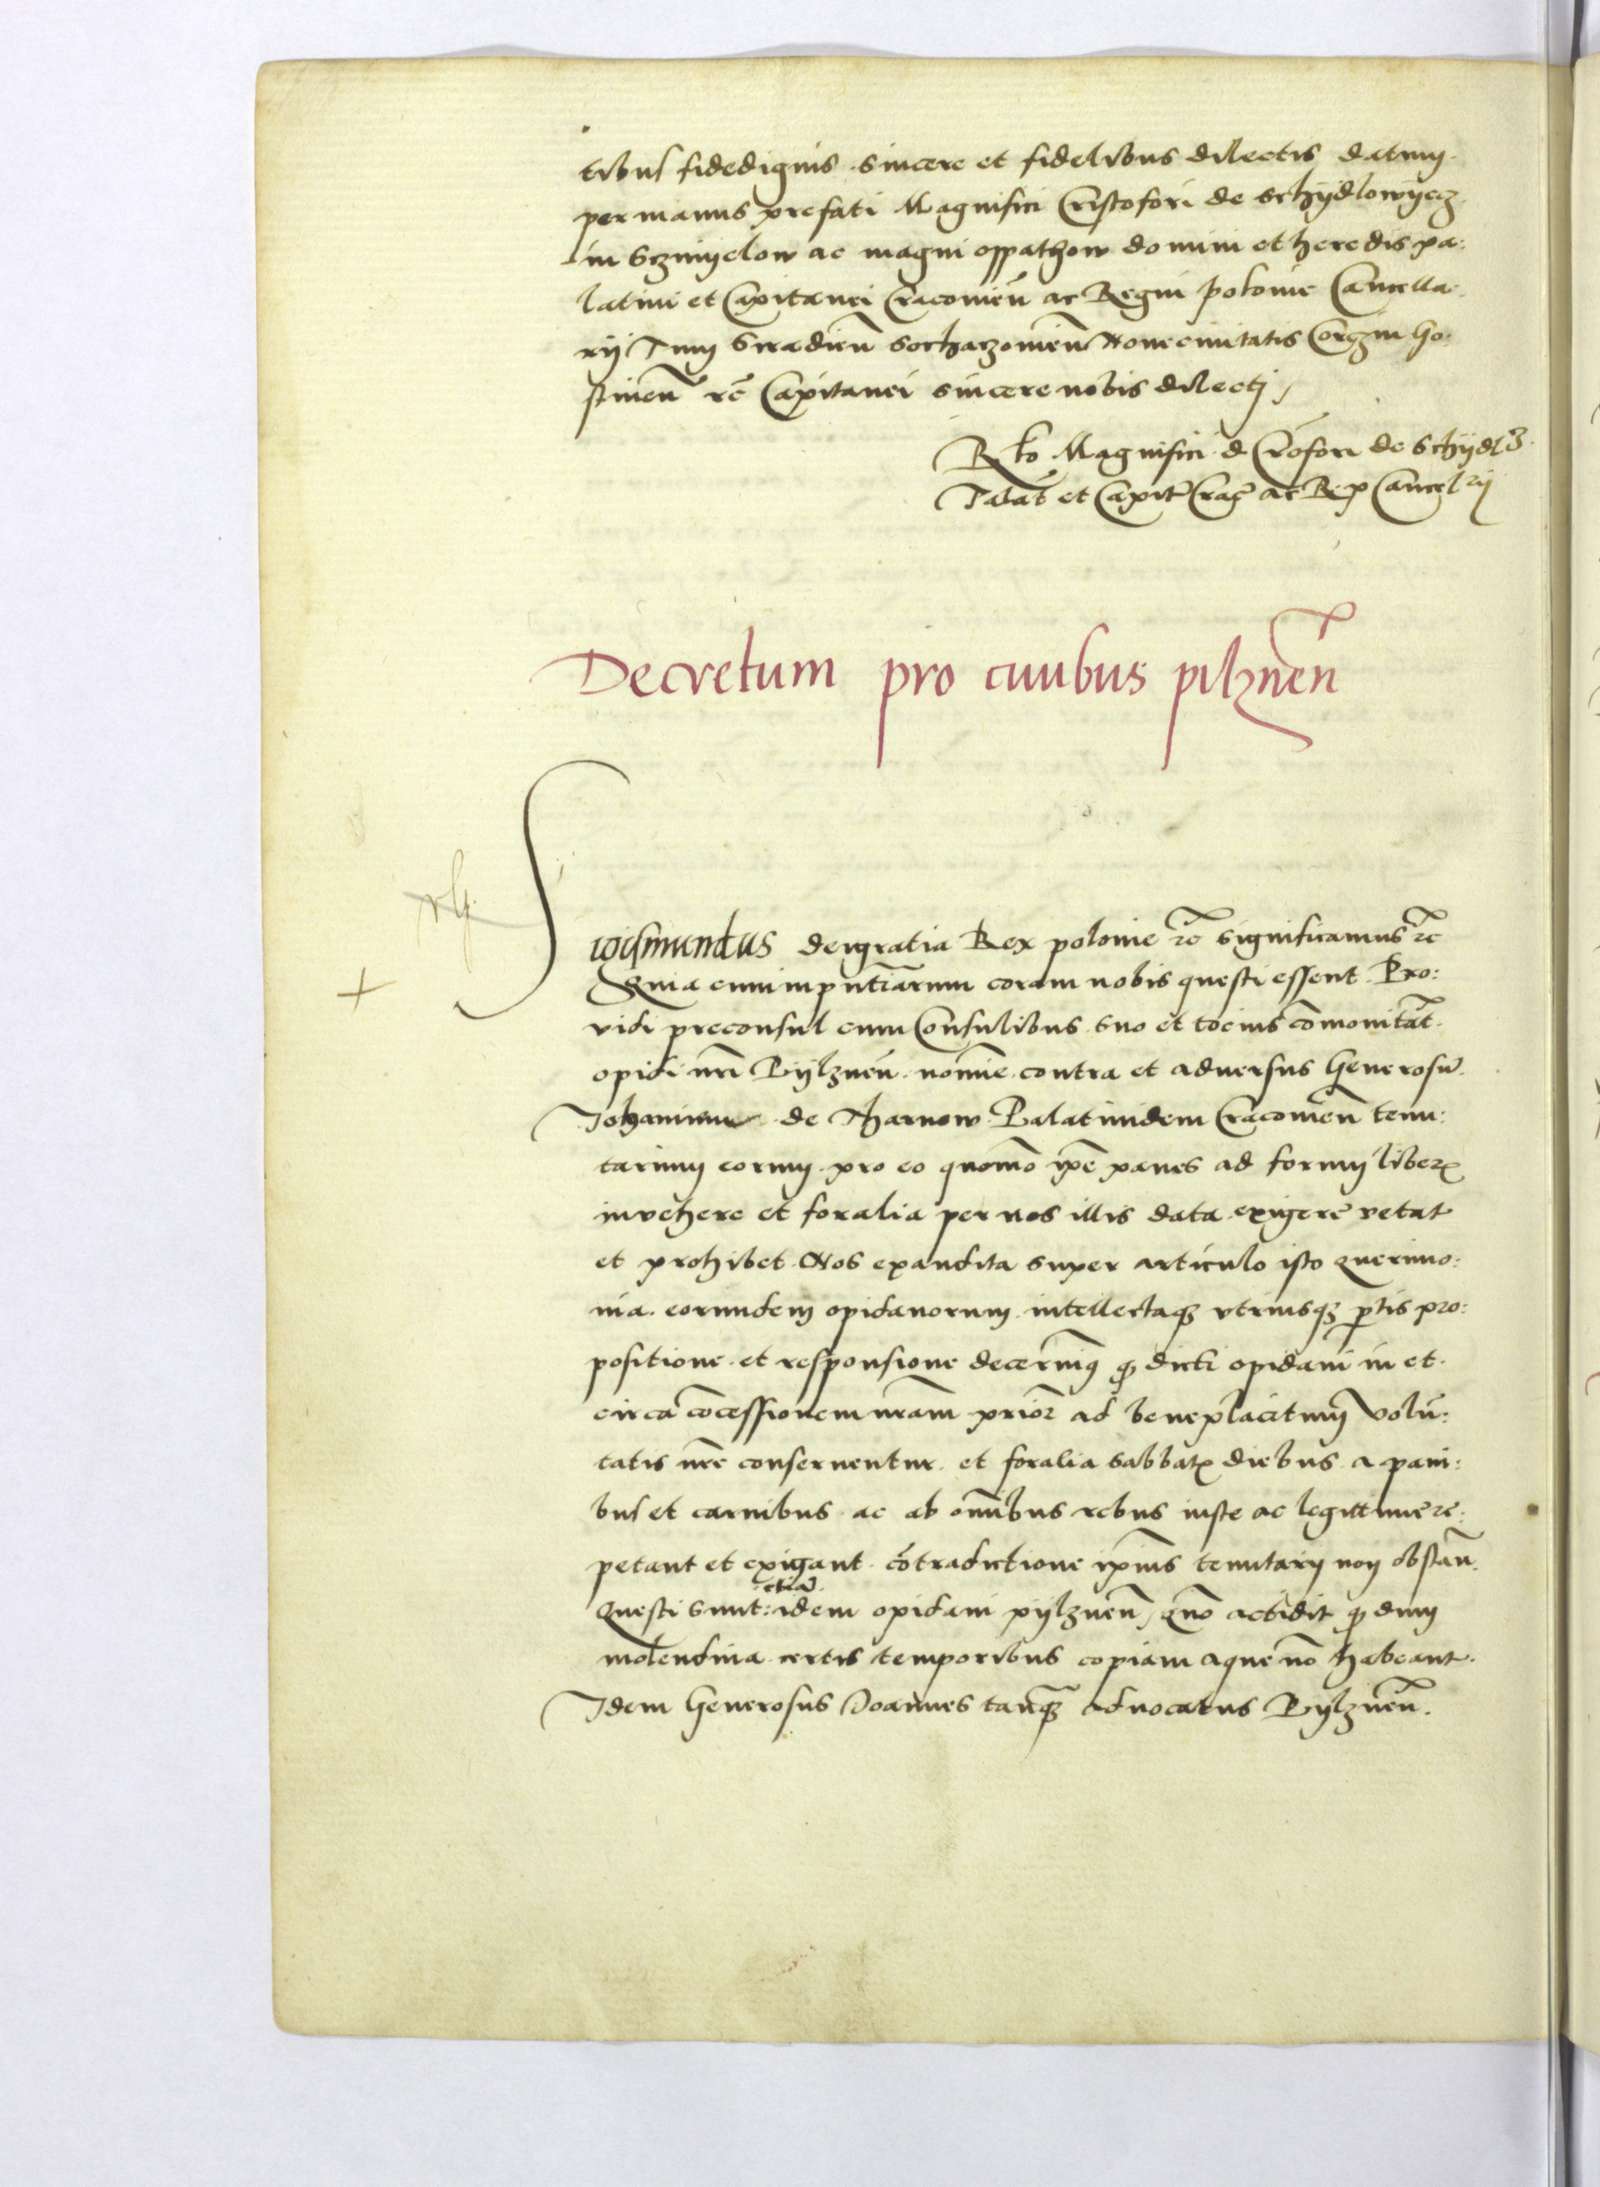 tibus fidedignis sincere et fidelibus dilectis datum
per manus prefati Magnifici Cristofori de schydlowyecz
in Sczmyelow ac magni oppathow domini et heredis pa:
latini et Capitanei Cracovień ac Regni polonie Cancella
rij Tum Siradień sochaczovień Nove civitatis Corczin Go:
stinień rc̄ Capitanei sincere nobis dilecti
Rto Magnifici d Crofori de Schydl
Palat̄ et Capit Crac̄ ac R p Cancel rij
Decretum pro civibus pilznen̄
Sigismundus dei gratia Rex polonie rc̄ significamus rc̄
Quia cum in pn̄tiarum coram nobis questi essent Pro:
vidi preconsul cum Consulibus suo et tocius cōmonitat̄
opidi nr̄i Pylznen̄ nomīe contra et adversus Generosū
Johannem de Tharnow Palatinidem Cracovien̄ tenu:
tarium eorum pro eo quomō ip̄e panes ad forum liber
invehere et foralia per nos illis data exigere vetat
et prohibet Nos exaudita super articulo isto querimo:
nia eorundem opidanorum intellectaqz utriusqz ptis pro:
positione et responsione decernimꝰ qz dicti opidani in et
circa cōcessionem nr̄am prior ad beneplacitum volū:
tatis nr̄e conserventur et foralia sabbat diebus a pani:
bus et carnibus ac ab om̄ibus rebus iuste ac legittime re:
petant et exigant cōtradictione ip̄ius tenutarij non obstan̄
etiā
Questi sunt: idem opidani pylznen̄, quō accidit qz dum
molendina certis temporibus copiam aque nō habeant
Idem Generosus Joannes tanqz advocatus Pylznen̄